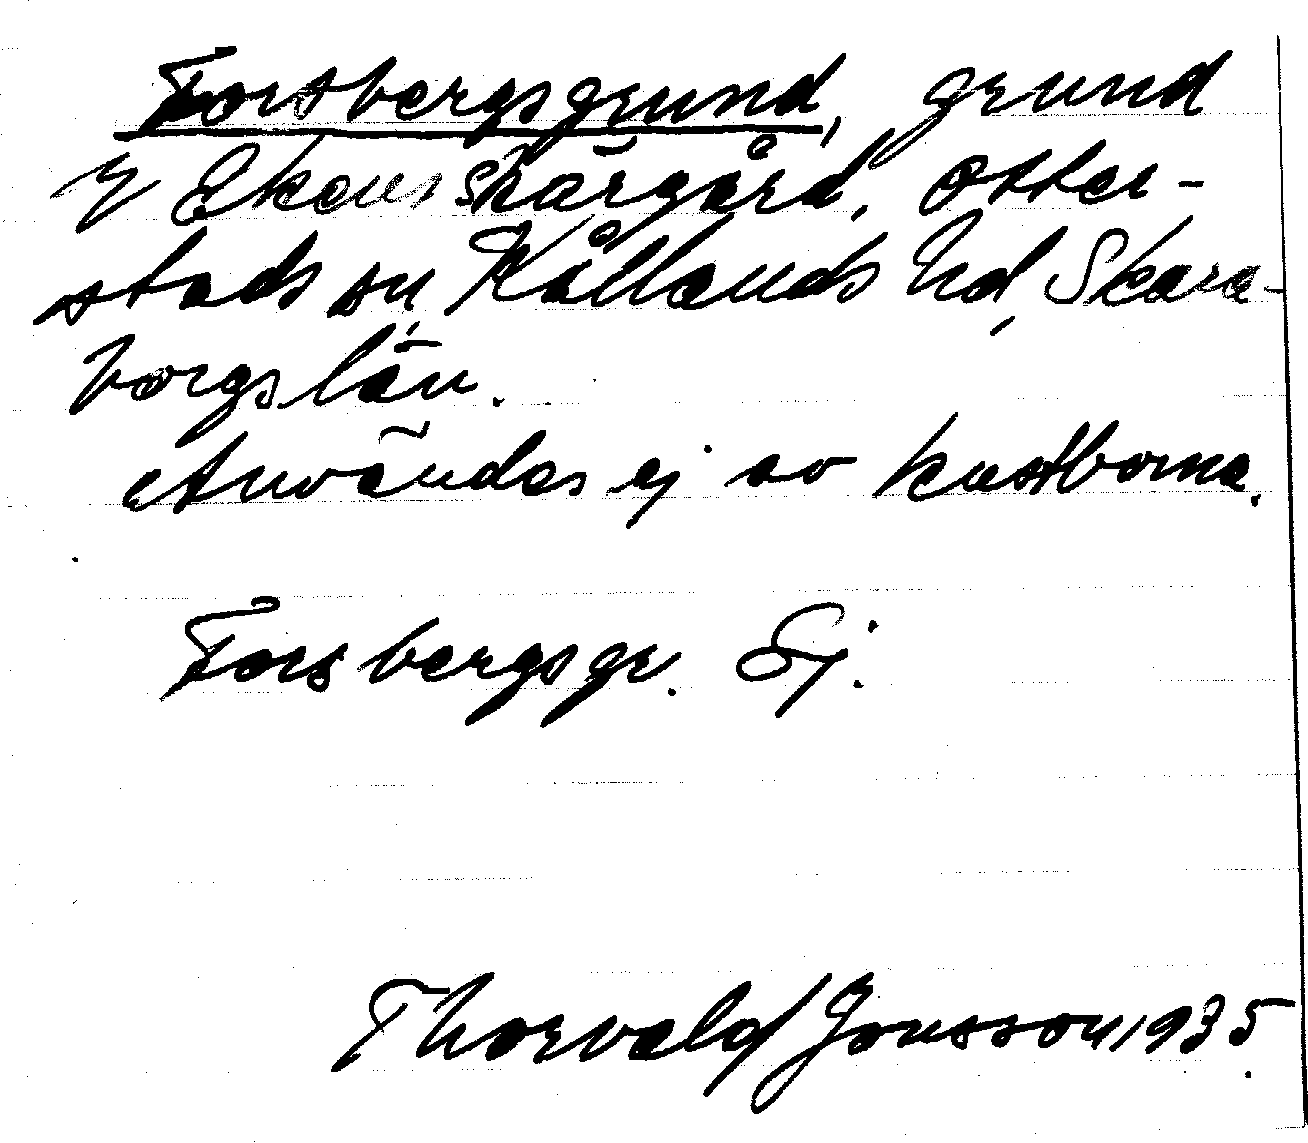 Forsbergsgrund, grund
i Ekens skärgård, Otter-
stads sn, Kållands hd, Skara-
borgs län.
Användes ej av kustborna.
Forsbergsgr. Sj.
Thorvald Jonsson 1935.